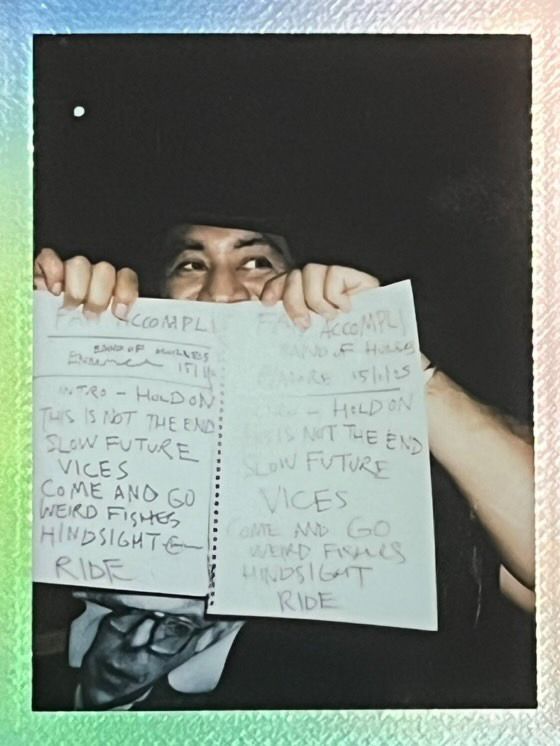 ACCOMPLI
BAND OF
15/1/
INTRO - HOLD ON
THIS IS NOT THE END
SLOW FUTURE
VICES
COME AND GO
WEIRD FISHES
HINDSIGHT
RIDE
FAIT ACCOMPLI
BAND OF HOLES
15/1/25
INTRO - HOLD ON
THIS IS NOT THE END
SLOW FUTURE
VICES
COME AND GO
WEIRD FISHES
HINDSIGHT
RIDE